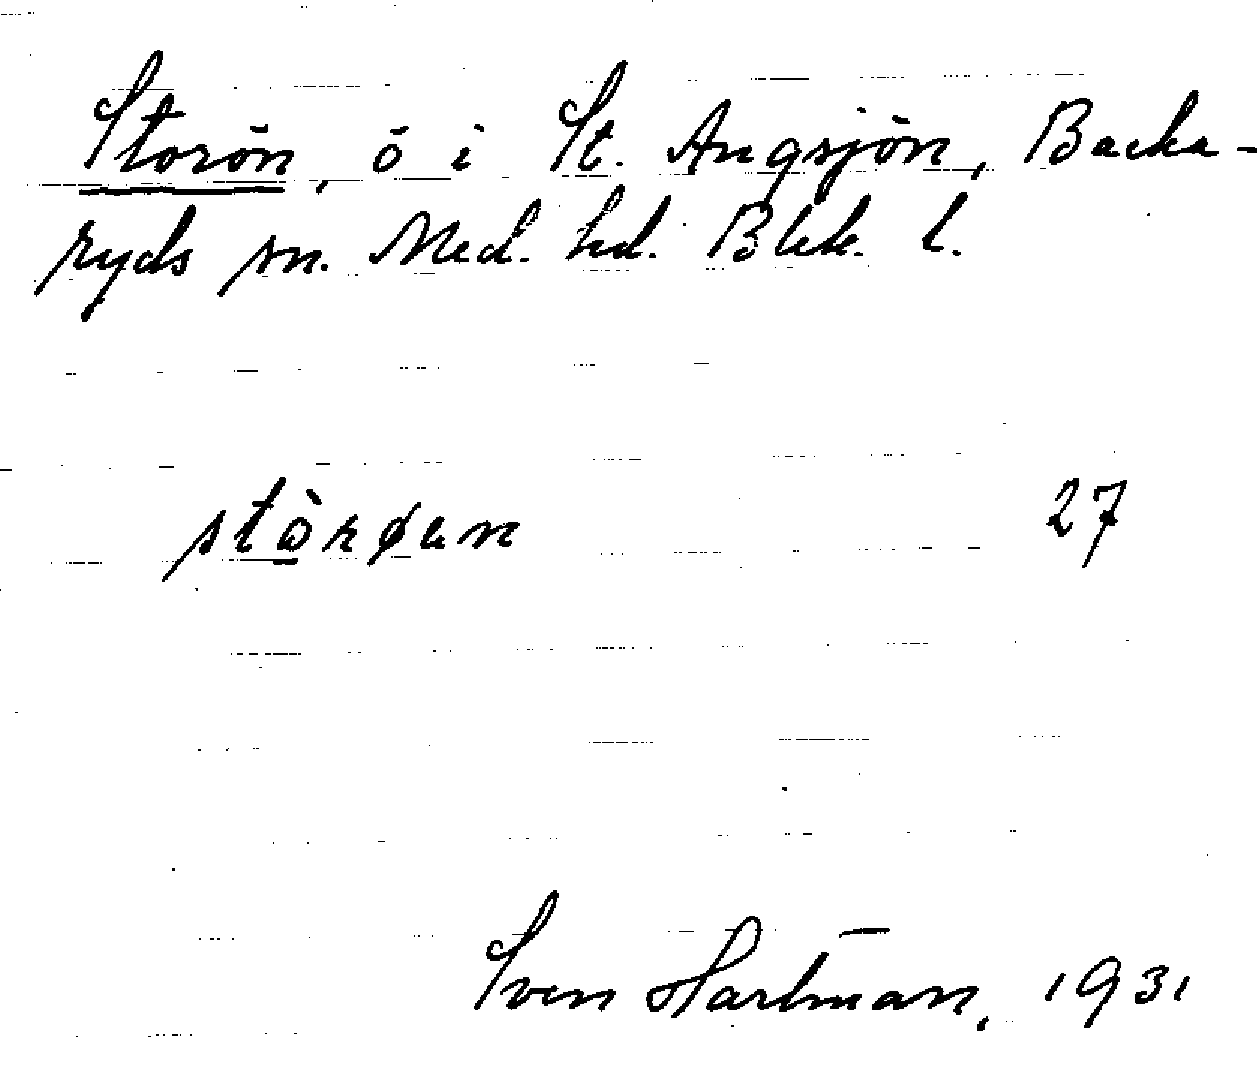 Storön, ö i St. Angsjön, Backa-
ryds sn. Med. hd. Blek. l.
stòrøen 27
Sven Hartman, 1931